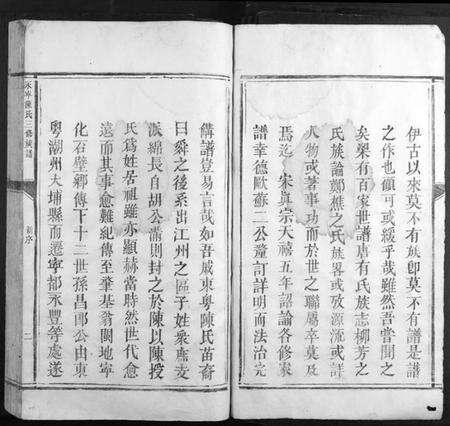 伊古以來莫不有族即莫不有譜是譜
之作也顧可或緩乎哉雖然吾嘗聞之
矣梁有百家世譜唐有氏族志柳芳之
氏族論鄭樵之氏族畧或攷源流或詳
人物或著事功而於世之聯屬卒莫及
焉迄 宋真宗天禧五年詔諭各修家
譜幸德歐蘇二公釐訂詳明而法治完
備譜豈易言哉如吾戚東粵陳氏苗裔
曰舜之後系出江州之區子姓衆庶支
派綿長自胡公滿則封之於陳以陳授
氏爲姓居祖雖亦顯赫當時然世代愈
遠而其事愈難紀傳至肇基翁閩地寧
化石壁鄉傳下十二世孫昌郎公由東
粵潮州大埔縣而遷寧都永豐等處遂
永寧陳氏二修族譜
序
二